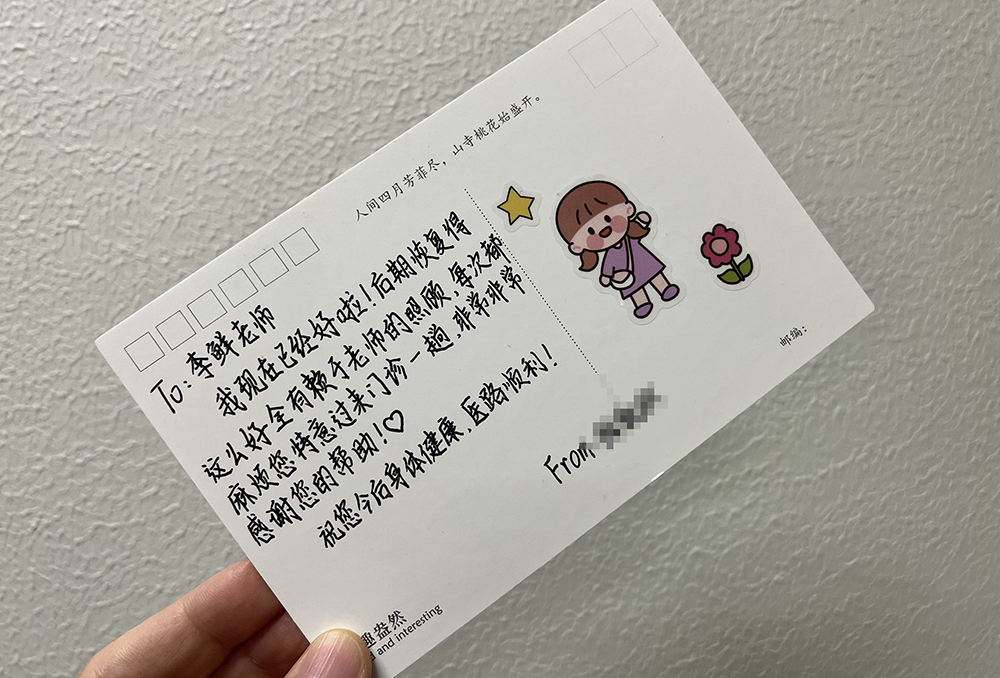 人间四月芳菲尽，山寺桃花始盛开。
To：李鲜老师
我现在已经好啦！后期恢复得
这么好全有赖于老师的照顾，每次都
麻烦您特意过来门诊一趟，非常非常
感谢您的帮助！♡
祝您今后身体健康，医路顺利！
From
邮编：
趣盎然
and interesting